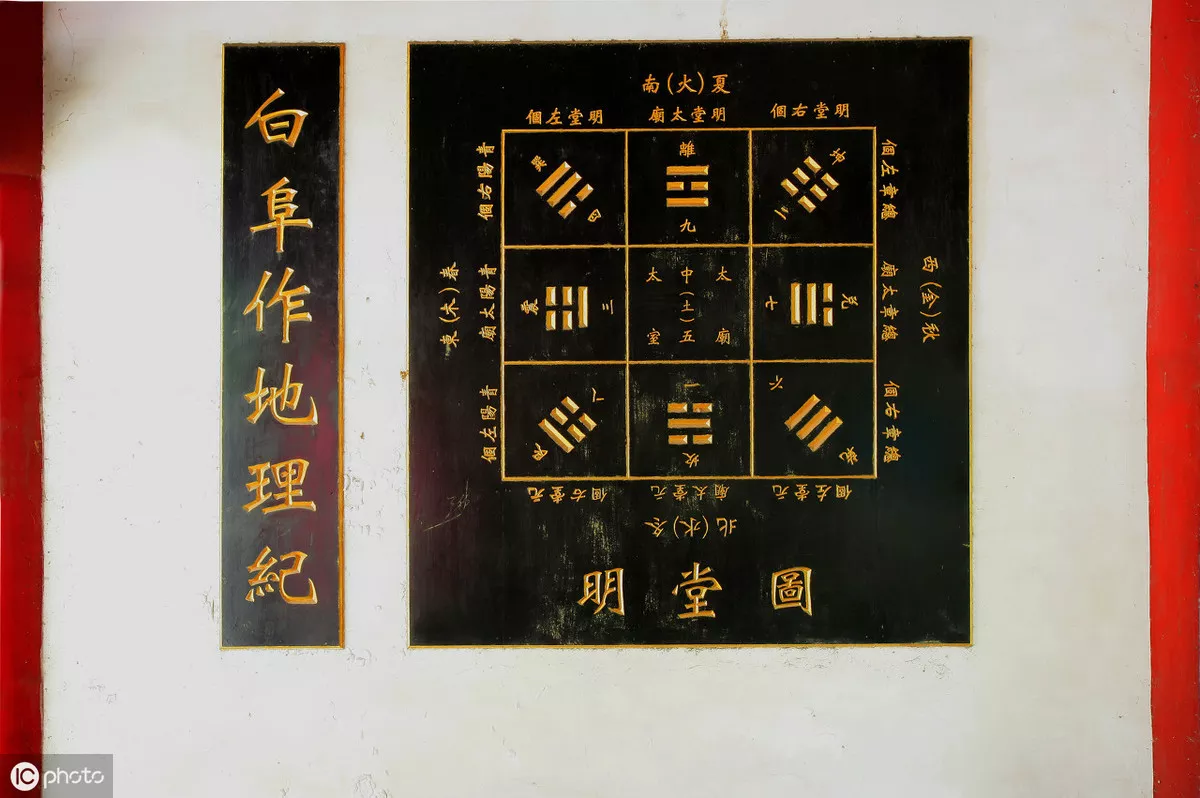 白阜作地理紀
南(火)夏
個左堂明
廟太堂明
個右堂明
個左章總
廟太章總
個右章總
西(金)秋
個左陽青
廟太陽青
個右陽青
東(木)春
巽
四
離
九
坤
二
震
三
太中太
(土)
室五廟
七
兌
艮
八
一
坎
六
乾
個左堂元
廟太堂元
個右堂元
北(水)冬
明堂圖
IC photo